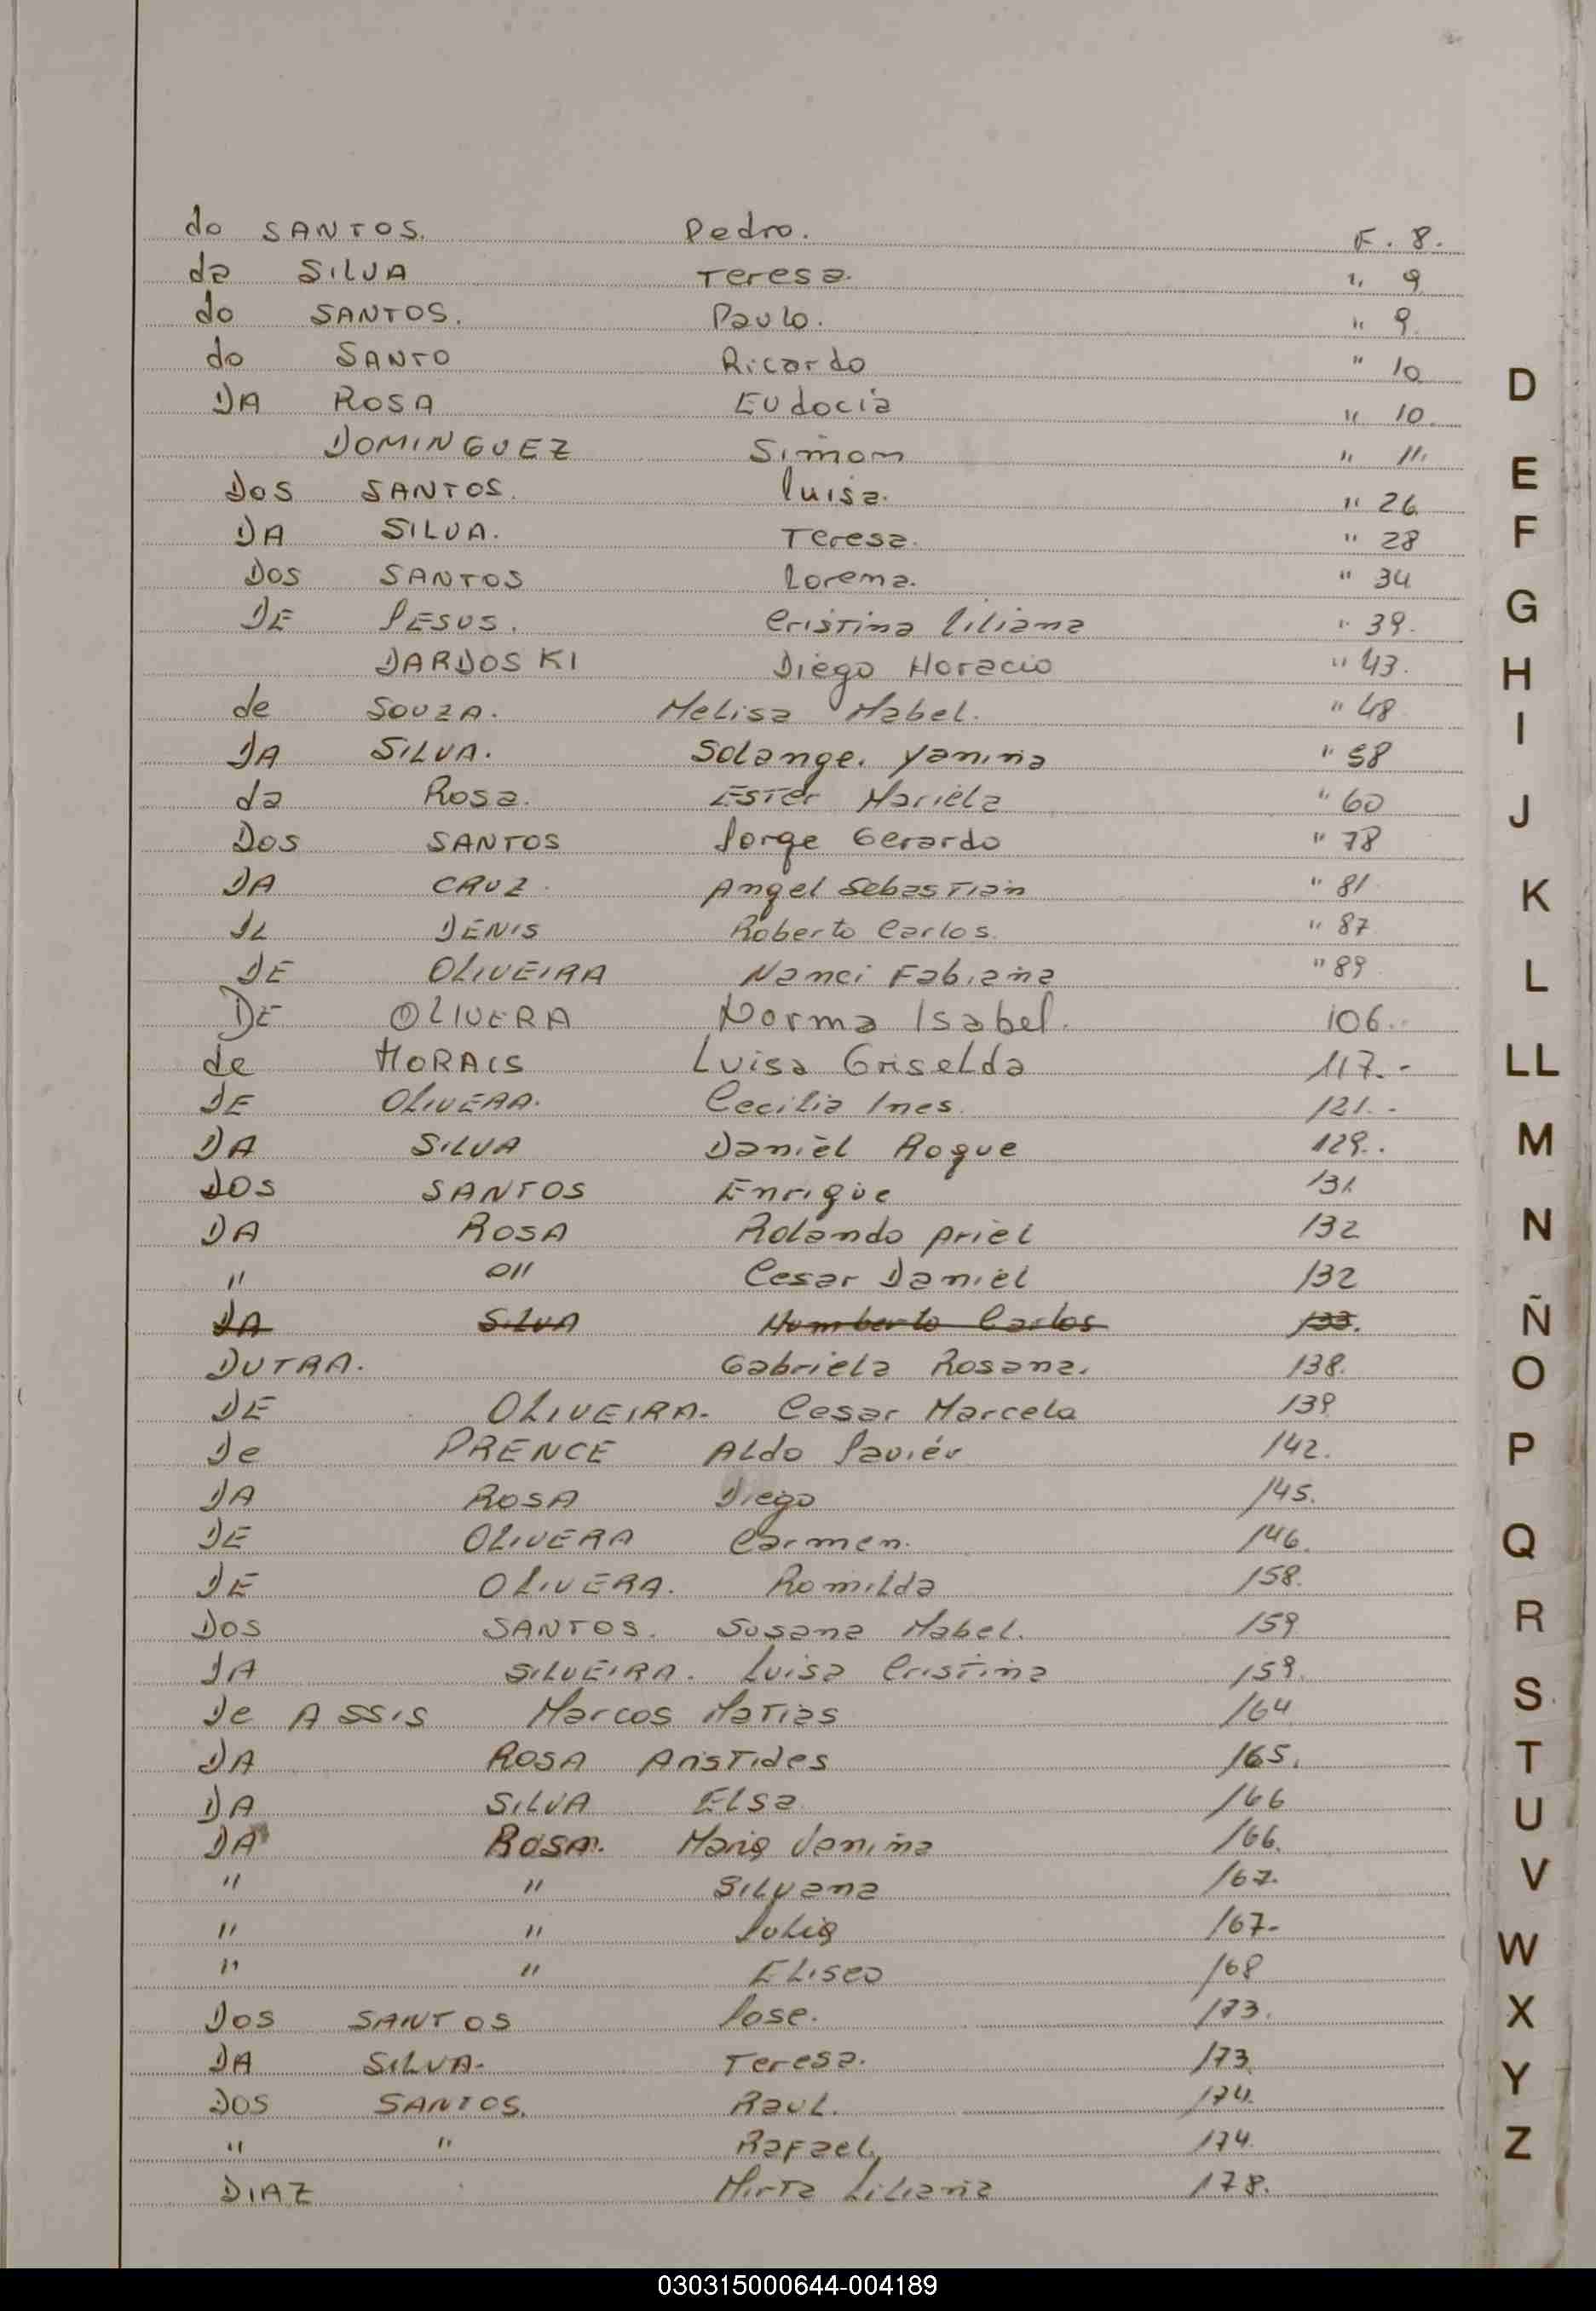 do SANTOS. Pedro. F. 8.
da SILVA Teresa. " 9
do SANTOS. Paulo. " 9.
do SANTO Ricardo " 10
DA ROSA Eudocia " 10.
DOMINGUEZ Simon " 11.
DOS SANTOS. Luisa. " 26
DA SILVA. Teresa. " 28
DOS SANTOS Lorena. " 34
DE JESUS. Cristina Liliana " 39.
DARDOSKI Diego Horacio " 43.
de SOUZA. Melisa Mabel. " 48
DA SILVA. Solange. Yanina " 58
da Rosa. Ester Mariela " 60
DOS SANTOS Jorge Gerardo " 78
DA CRUZ. Angel Sebastian " 81
DENIS Roberto Carlos. " 87
DE OLIVEIRA Nanci Fabiana " 89
DE OLIVERA Norma Isabel. 106.
de MORAIS Luisa Griselda 117.-
DE OLIVERA. Cecilia Ines. 121.-
DA SILVA Daniel Roque 129..
DOS SANTOS Enrique 131.
DA ROSA Rolando Ariel 132
" " Cesar Daniel 132
DA SILVA Humberto Carlos 133.
DUTRA. Gabriela Rosana. 138.
DE OLIVEIRA. Cesar Marcelo 139
De PRENCE Aldo Javier 142.
DA ROSA Diego 145.
DE OLIVERA Carmen. 146.
DE OLIVERA. Romilda 158.
DOS SANTOS. Susana Mabel. 159
DA SILVEIRA. Luisa Cristina 159.
De ASSIS Marcos Matias 164
DA ROSA Aristides 165.
DA SILVA Elsa 166
DA ROSA. Maria Janina 166.
" " Silvana 167.
" " Julia 167-
" " Eliseo 168
DOS SANTOS Jose. 173.
DA SILVA. Teresa. 173.
DOS SANTOS. Raul. 174.
" " Rafael. 174.
DIAZ Mirta Liliana 178.
D
E
F
G
H
I
J
K
L
LL
M
N
Ñ
O
P
Q
R
S
T
U
V
W
X
Y
Z
030315000644-004189